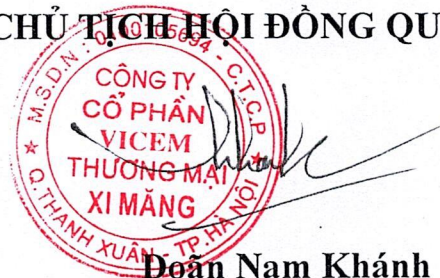 CHỦ TỊCH HỘI ĐỒNG QU
M.S.D.N: 0100105694 - C.T.C.P
CÔNG TY
CỔ PHẦN
VICEM
THƯƠNG MẠI
XI MĂNG
Q. THANH XUÂN - TP. HÀ NỘI
Doãn Nam Khánh